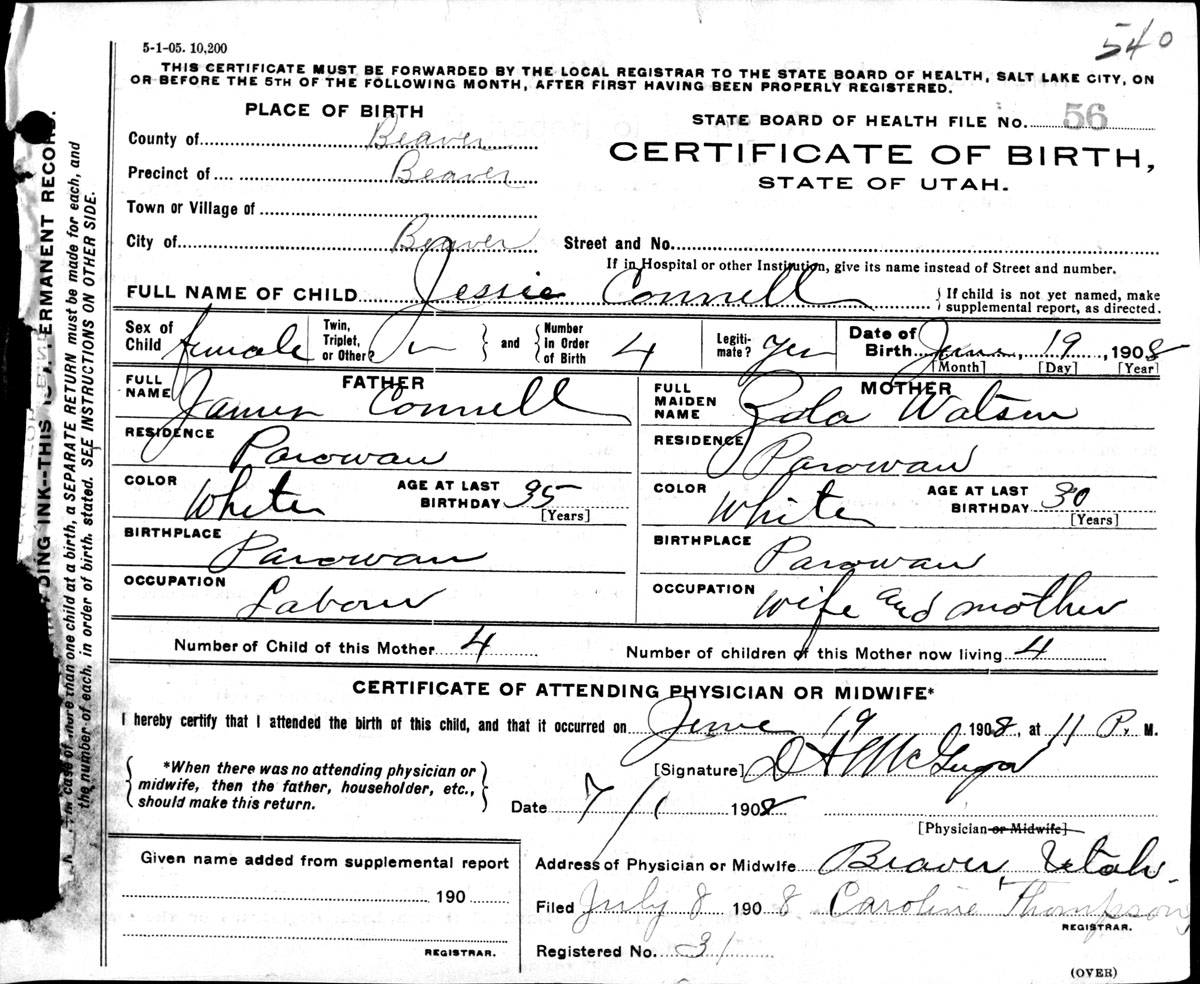 540
5-1-05. 10,200
THIS CERTIFICATE MUST BE FORWARDED BY THE LOCAL REGISTRAR TO THE STATE BOARD OF HEALTH, SALT LAKE CITY, ON
OR BEFORE THE 5TH OF THE FOLLOWING MONTH, AFTER FIRST HAVING BEEN PROPERLY REGISTERED.
PLACE OF BIRTH
STATE BOARD OF HEALTH FILE No. 56
County of Beaver
CERTIFICATE OF BIRTH,
Precinct of Beaver
STATE OF UTAH.
Town or Village of
City of Beaver
Street and No.
If in Hospital or other Institution, give its name instead of Street and number.
FULL NAME OF CHILD Jessie Connell
{ If child is not yet named, make
supplemental report, as directed.
Sex of Child female
Twin, Triplet, or Other? } and { Number in Order of Birth 4
Legiti-mate? Yes
Date of Birth June, 19, 1908
[Month] [Day] [Year]
FATHER
FULL NAME James Connell
RESIDENCE Parowan
COLOR White AGE AT LAST BIRTHDAY 35
[Years]
BIRTHPLACE Parowan
OCCUPATION Labour
MOTHER
FULL MAIDEN NAME Zola Watson
RESIDENCE Parowan
COLOR White AGE AT LAST BIRTHDAY 30
[Years]
BIRTHPLACE Parowan
OCCUPATION wife and mother
Number of Child of this Mother 4 Number of children of this Mother now living 4
CERTIFICATE OF ATTENDING PHYSICIAN OR MIDWIFE*
I hereby certify that I attended the birth of this child, and that it occurred on June 19 1908, at 11 P. M.
{ *When there was no attending physician or
midwife, then the father, householder, etc.,
should make this return. }
[Signature] D H McGregor
Date 7/1 1908
[Physician or Midwife]
Given name added from supplemental report
190
REGISTRAR.
Address of Physician or Midwife Beaver, Utah.
Filed July 8 1908 Caroline Thompson
REGISTRAR.
Registered No. 31
(OVER)
DING INK--THIS IS A PERMANENT RECORD.
In case of more than one child at a birth, a SEPARATE RETURN must be made for each, and
the number of each, in order of birth, stated. SEE INSTRUCTIONS ON OTHER SIDE.